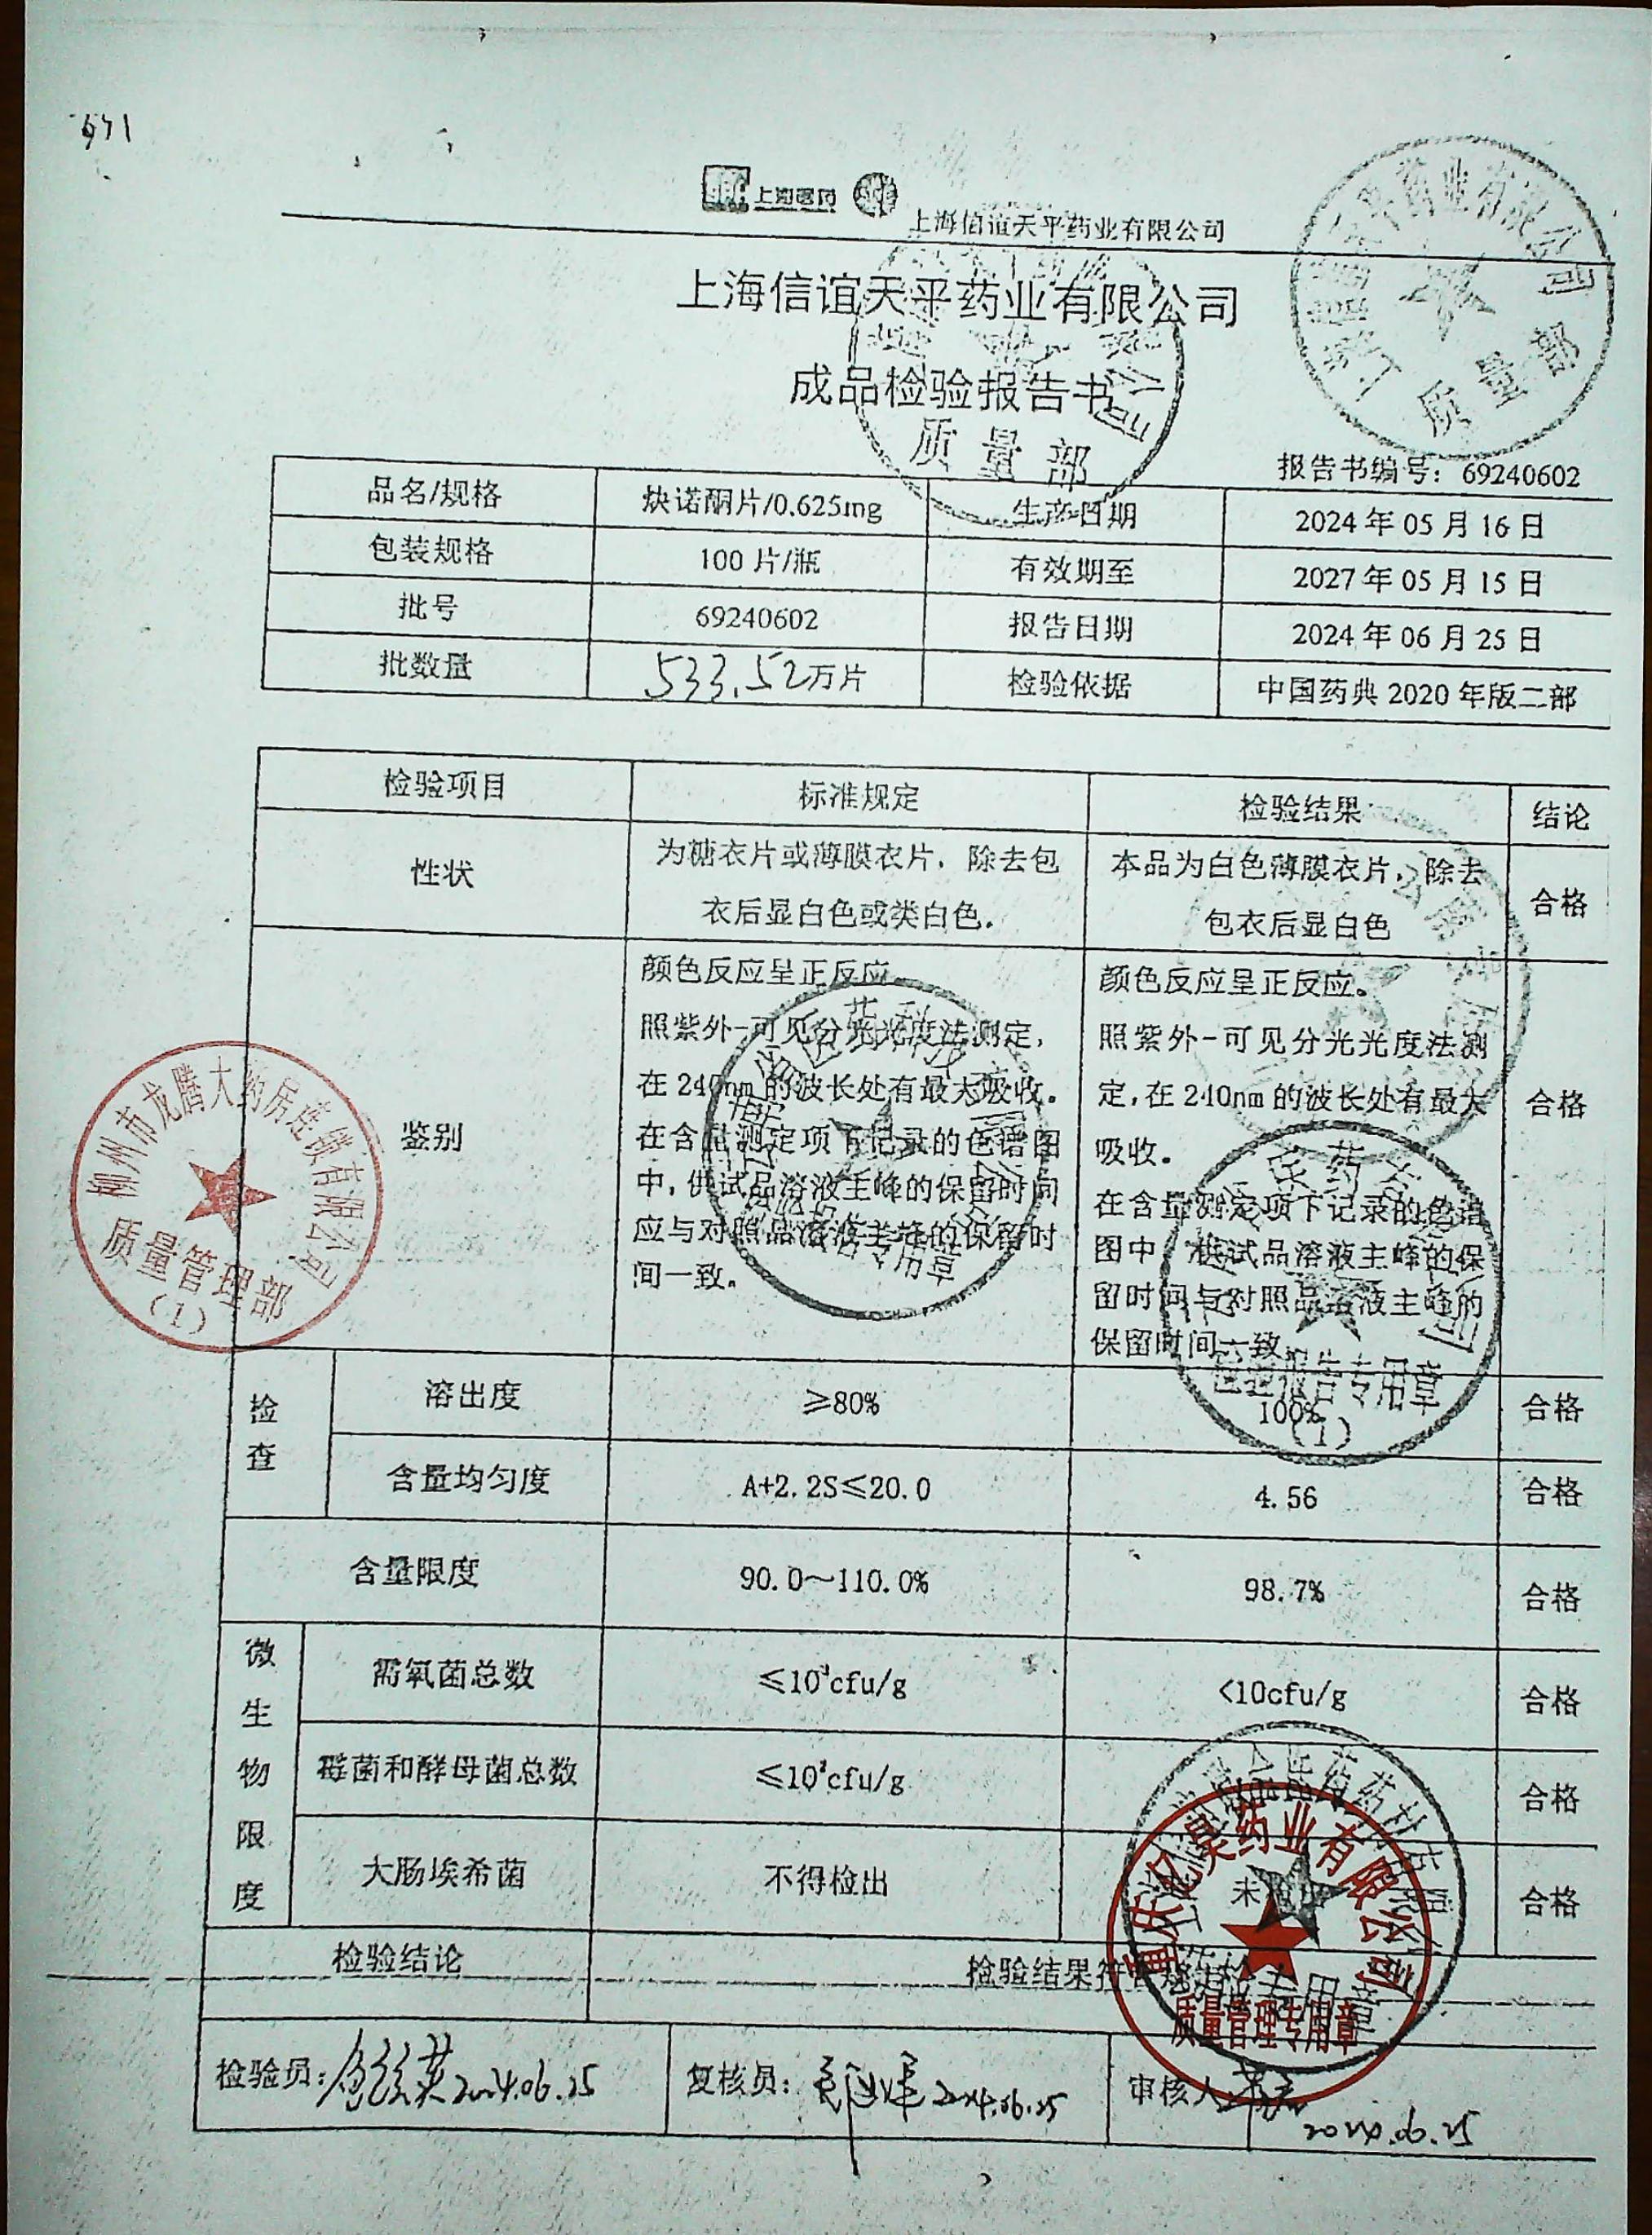 671
上海医药
上海信谊天平药业有限公司
上海信谊天平药业有限公司
成品检验报告书
质量部
质量部
报告书编号：69240602
品名/规格 炔诺酮片/0.625mg 生产日期 2024年05月16日
包装规格 100片/瓶 有效期至 2027年05月15日
批号 69240602 报告日期 2024年06月25日
批数量 533.52万片 检验依据 中国药典2020年版二部
检验项目 标准规定 检验结果 结论
性状 为糖衣片或薄膜衣片，除去包 本品为白色薄膜衣片，除去 合格
衣后显白色或类白色. 包衣后显白色
鉴别 合格
颜色反应呈正反应.
照紫外-可见分光光度法测定，
在240nm的波长处有最大吸收.
在含量测定项下记录的色谱图
中,供试品溶液主峰的保留时间
应与对照品溶液主峰的保留时
间一致。
颜色反应呈正反应。
照紫外-可见分光光度法测
定,在240nm的波长处有最大
吸收.
在含量测定项下记录的色谱
图中，供试品溶液主峰的保
留时间与对照品溶液主峰的
保留时间一致.
柳州市龙腾大药房连锁有限公司
质量管理部
(1)
专用章
检验报告专用章
(1)
检查
溶出度 ≥80% 100% 合格
含量均匀度 A+2.2S≤20.0 4.56 合格
含量限度 90.0～110.0% 98.7% 合格
微生物限度
需氧菌总数 ≤10³cfu/g <10cfu/g 合格
霉菌和酵母菌总数 ≤10²cfu/g 合格
大肠埃希菌 不得检出 未 合格
检验结论 检验结果符合规定
药业有限公司
质量管理专用章
检验员: 2024.06.25 复核员: 2024.06.25 审核人
2024.06.25